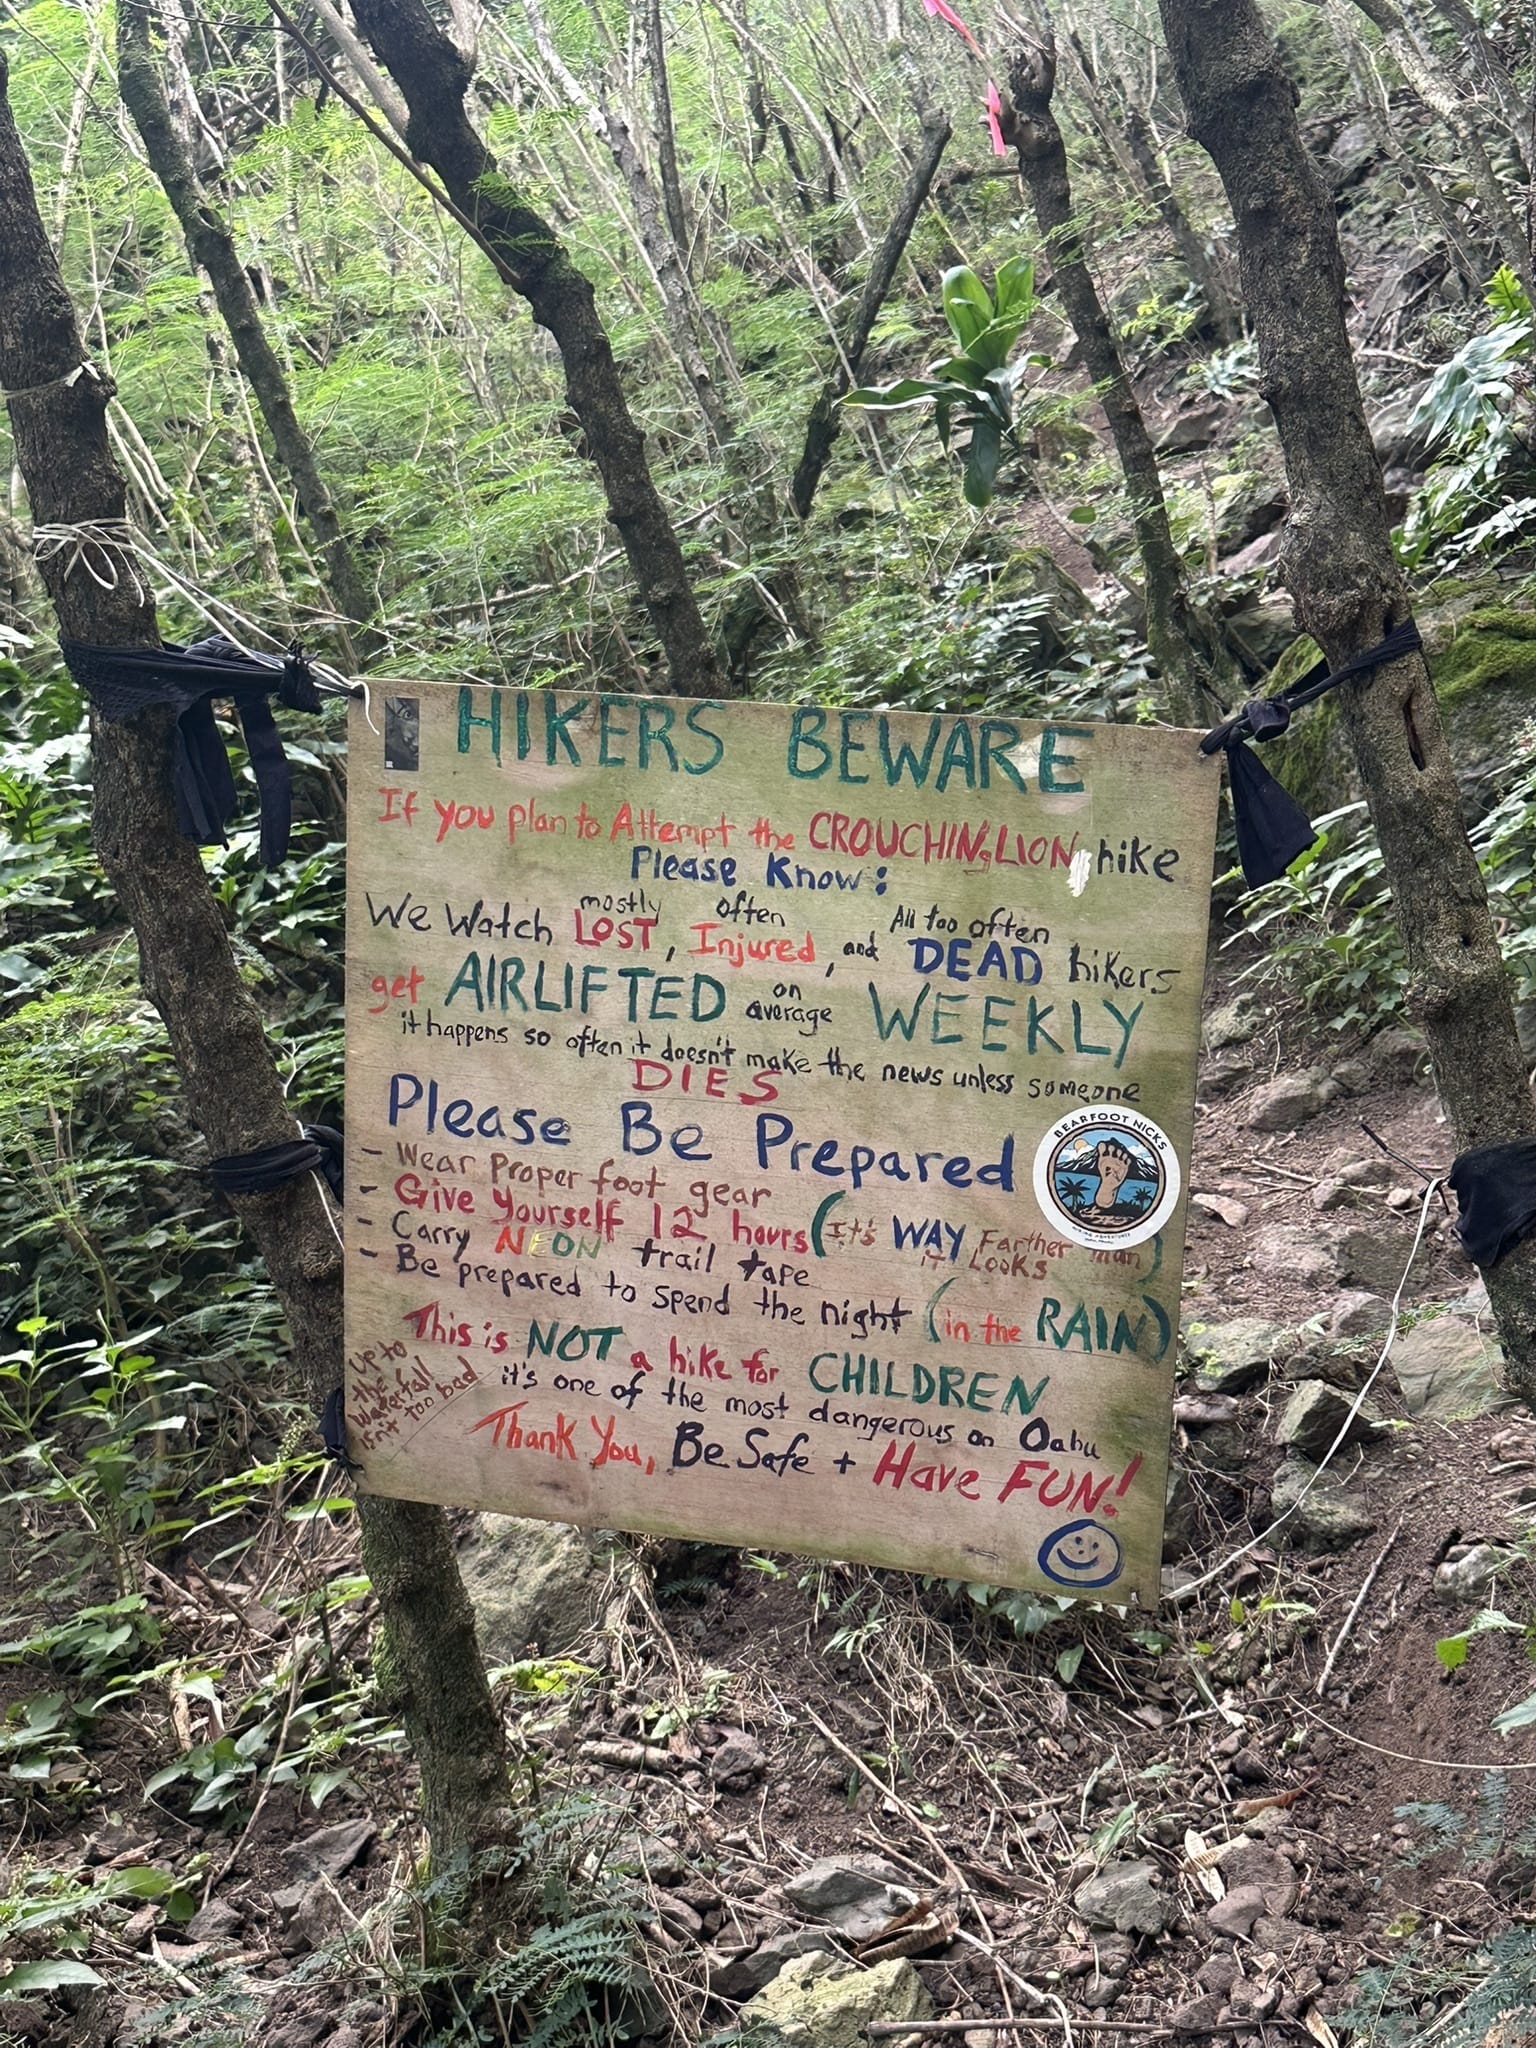 HIKERS BEWARE
If you plan to Attempt the CROUCHING LION hike
Please Know:
mostly often All too often
We Watch LOST, Injured, and DEAD hikers
get AIRLIFTED on average WEEKLY
it happens so often it doesn't make the news unless someone
DIES
Please Be Prepared
BEARFOOT NICKS
- Wear Proper foot gear
- Give Yourself 12 hours (It's WAY Farther than it Looks)
- Carry NEON trail tape
- Be prepared to spend the night (in the RAIN)
This is NOT a hike for CHILDREN
it's one of the most dangerous on Oahu
up to
the
Waterfall
isn't too bad
Thank You, Be Safe + Have FUN!